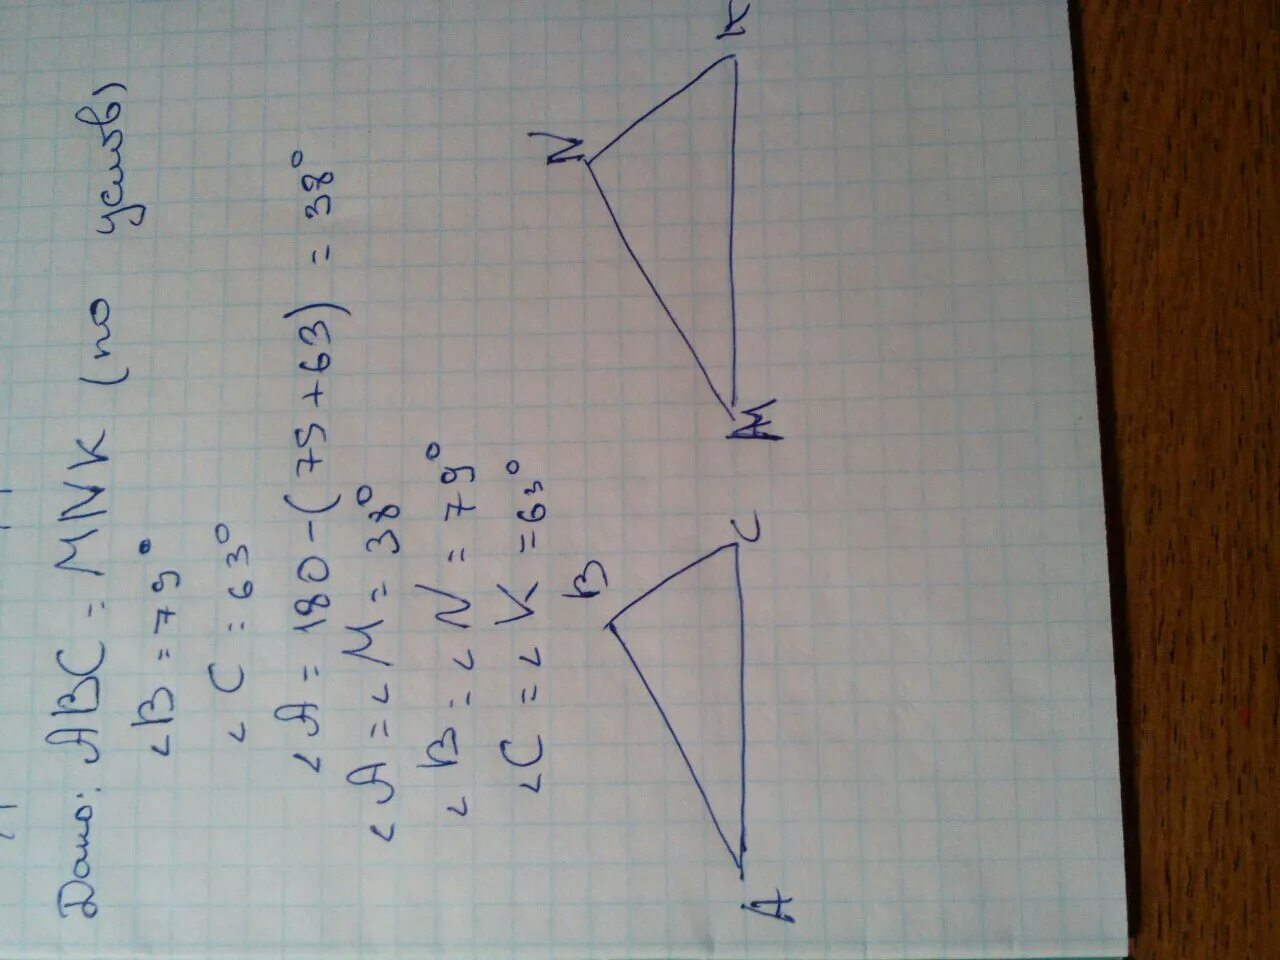 Дано: ABC = MNK (по услов)
∠B = 79°
∠C = 63°
∠A = 180 - (75 + 63) = 38°
∠A = ∠M = 38°
∠B = ∠N = 79°
∠C = ∠K = 63°
B
A
C
N
M
K